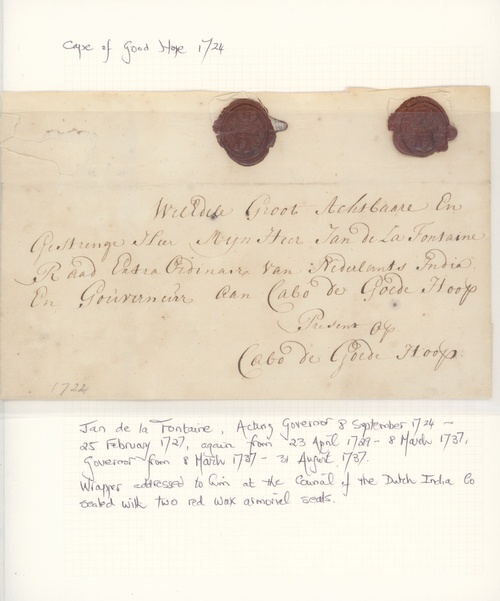 Cape of Good Hope 1724
WelEdele Groot Achtbaare En
Gestrenge Heer Mijn Heer Jan de La Fontaine
Raad Extra Ordinair van Nederlants India
En Gouverneur aan Cabo de Goede Hoop
Present op
Cabo de Goede Hoop.
1722
Jan de la Fontaine, Acting Governor 8 September 1724 –
25 February 1727, again from 23 April 1729 - 8 March 1737,
Governor from 8 March 1737 - 31 August 1737.
Wrapper addressed to him at the Council of the Dutch India Co
sealed with two red wax armorial seals.